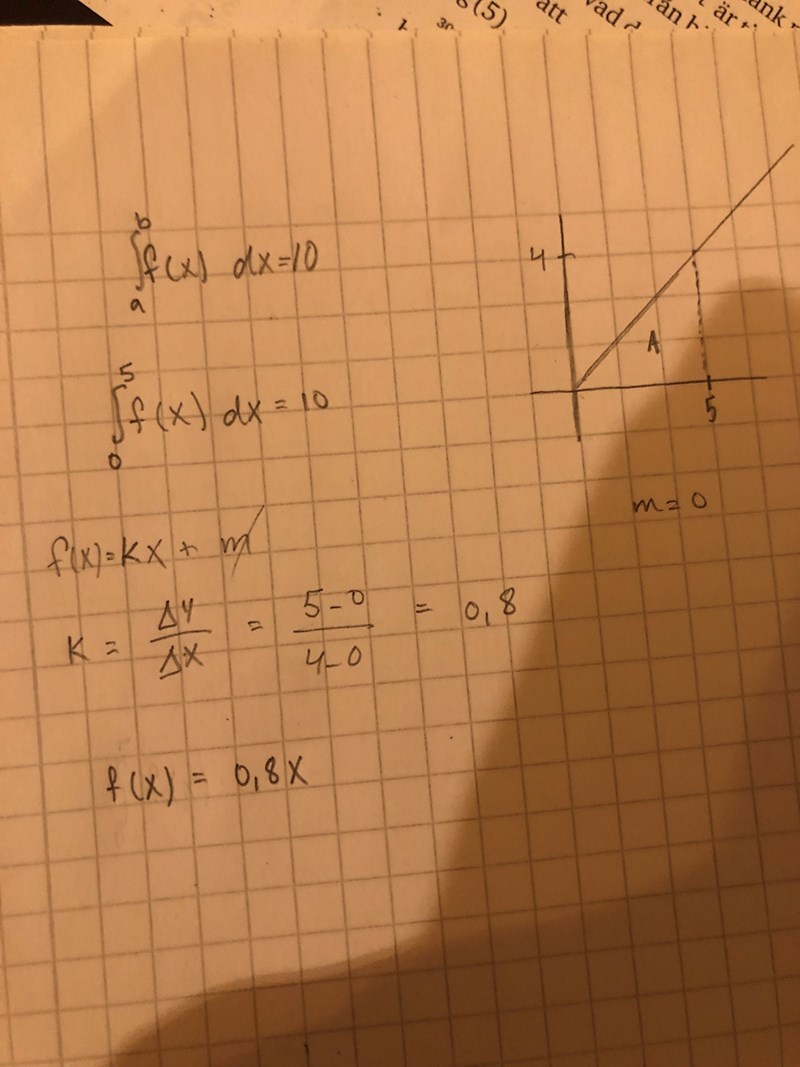 (5)
att
vad
är
∫_a^b f(x) dx=10
4
A
5
∫_0^5 f(x) dx = 10
m=0
f(x)=kx + m
k = Δy/Δx = (5-0)/(4-0) = 0,8
f(x) = 0,8x